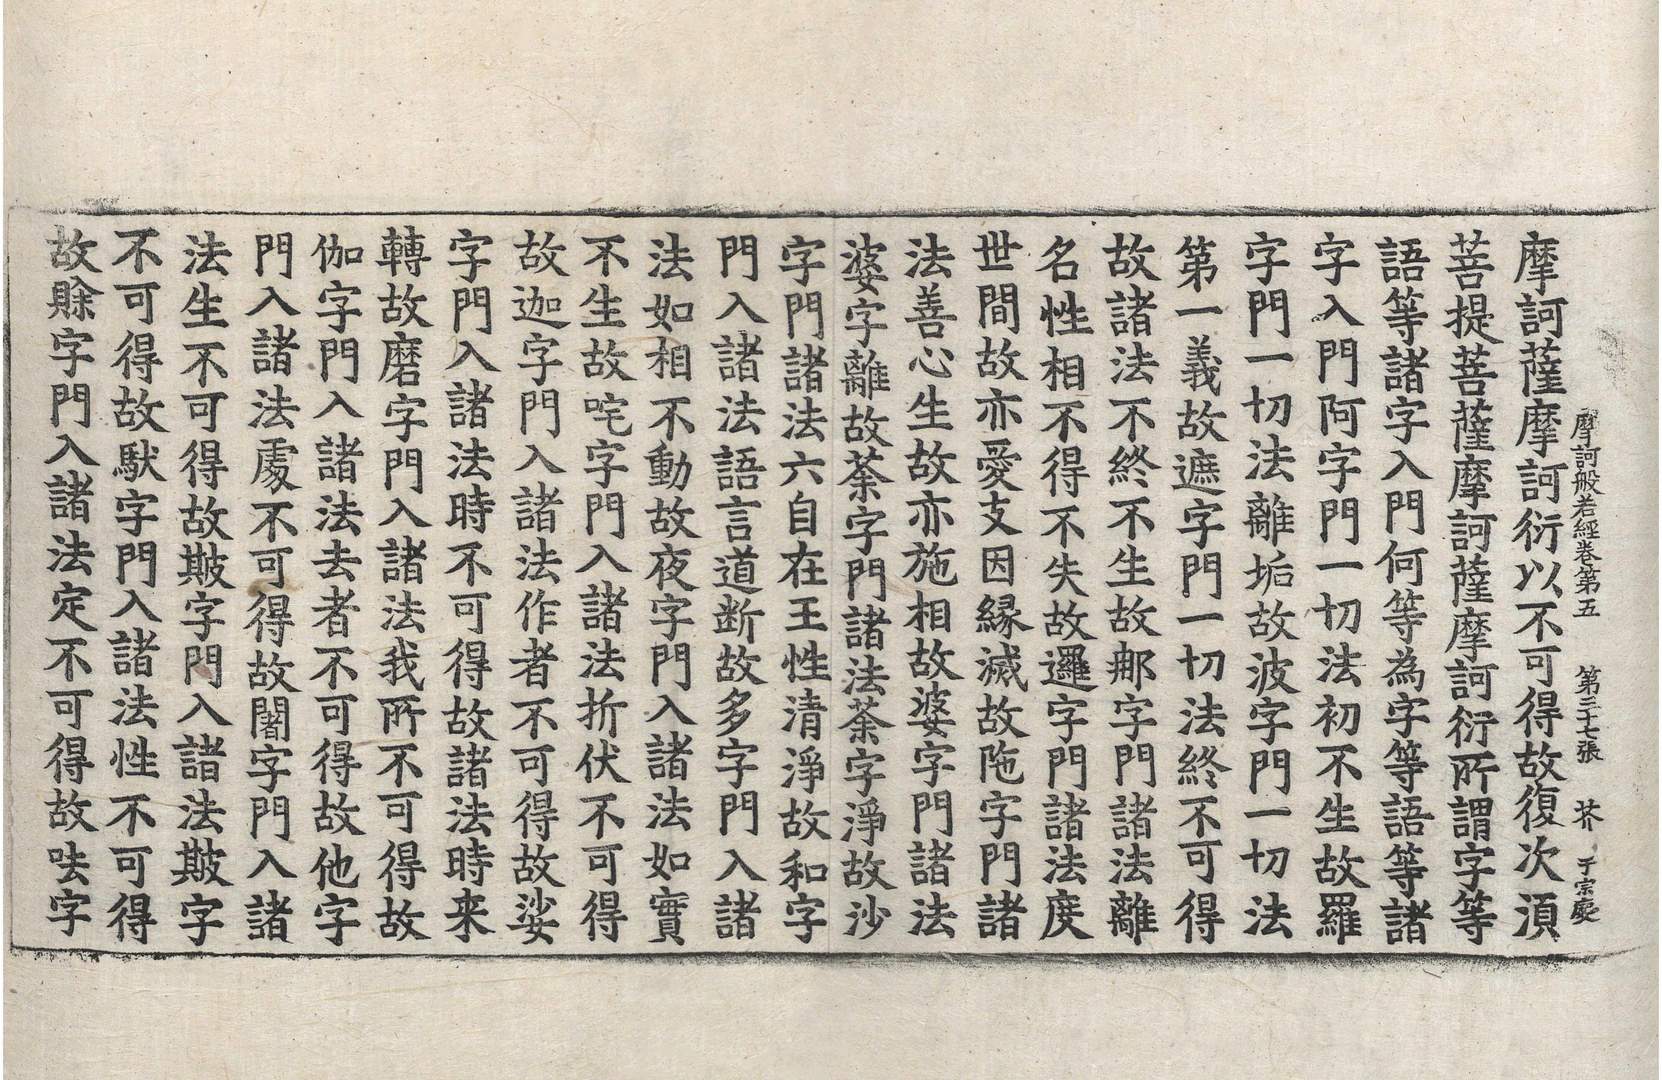 摩訶般若經卷第五　第二十七張　芥　于宗慶
摩訶薩摩訶衍以不可得故復次湏
菩提菩薩摩訶薩摩訶衍所謂字等
語等諸字入門何等為字等語等諸
字入門阿字門一切法初不生故羅
字門一切法離垢故波字門一切法
第一義故遮字門一切法終不可得
故諸法不終不生故那字門諸法離
名性相不得不失故邏字門諸法度
世間故亦愛支因縁滅故陁字門諸
法善心生故亦施相故婆字門諸法
婆字離故荼字門諸法荼字淨故沙
字門諸法六自在王性清淨故和字
門入諸法語言道断故多字門入諸
法如相不動故夜字門入諸法如實
不生故咤字門入諸法折伏不可得
故迦字門入諸法作者不可得故娑
字門入諸法時不可得故諸法時来
轉故磨字門入諸法我所不可得故
伽字門入諸法去者不可得故他字
門入諸法處不可得故闍字門入諸
法生不可得故簸字門入諸法簸字
不可得故馱字門入諸法性不可得
故賒字門入諸法定不可得故呿字